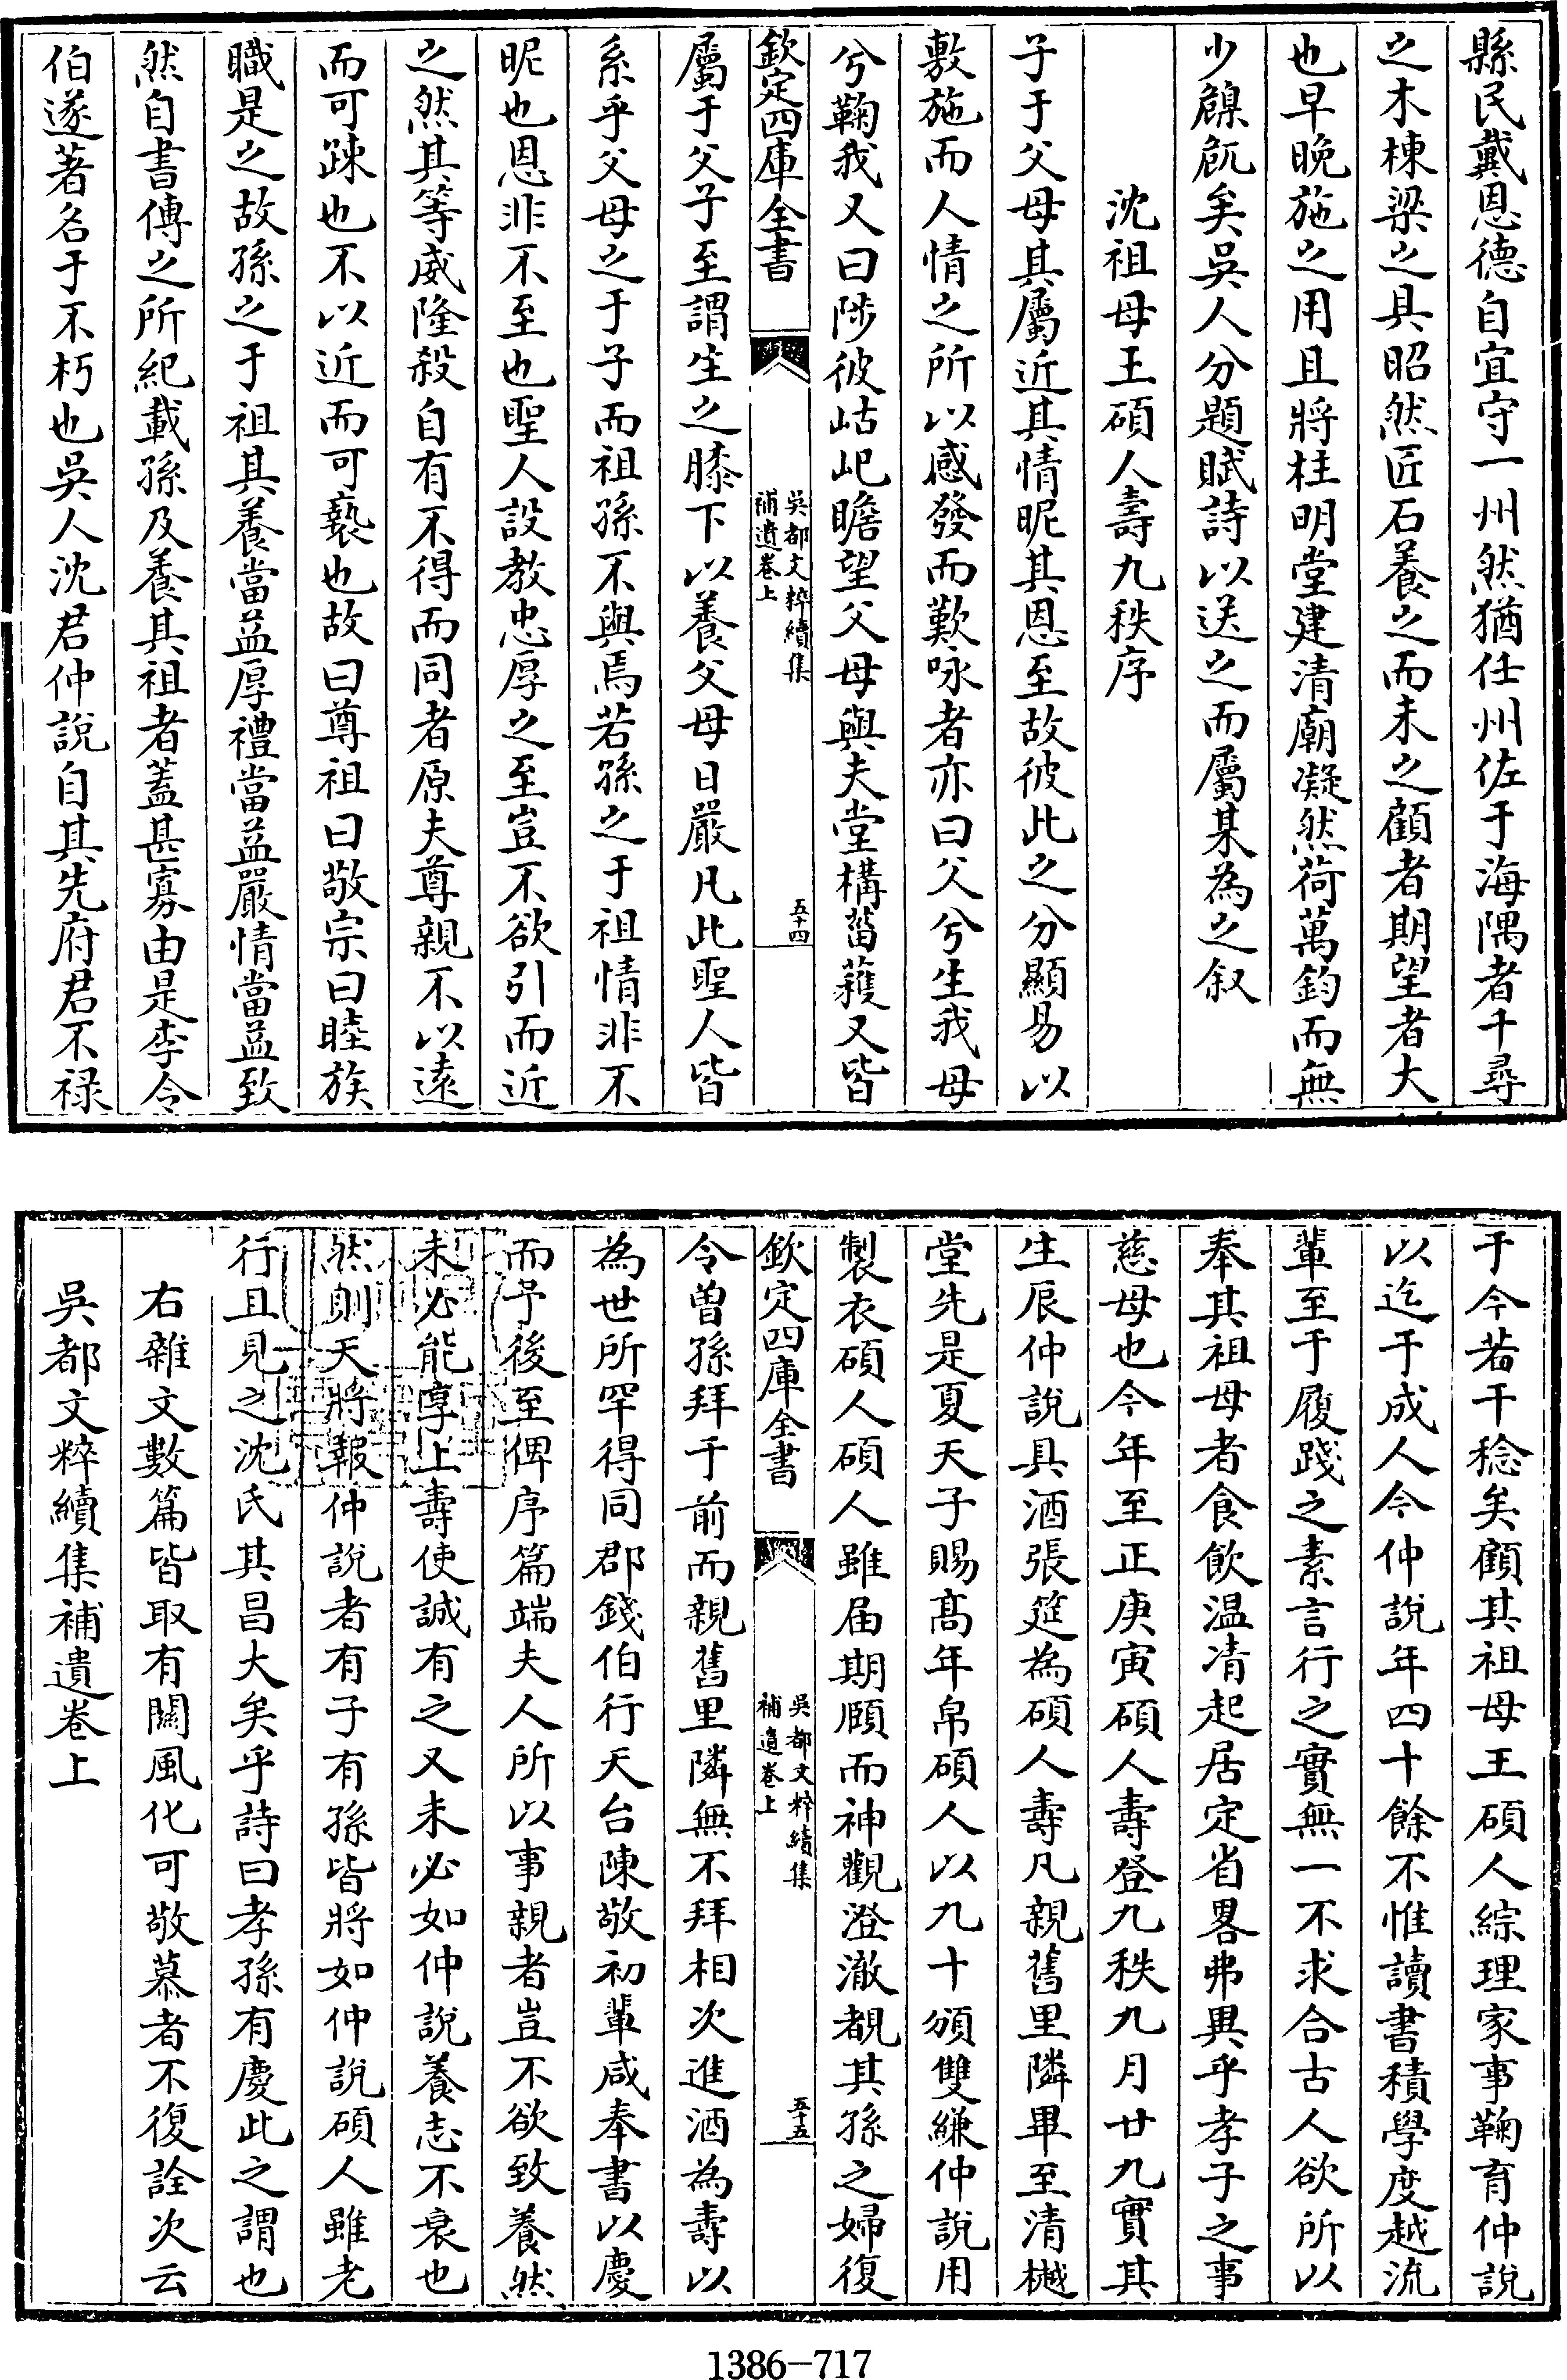 縣民戴恩德自宜守一州然猶任州佐于海隅者千尋
之木棟梁之具昭然匠石養之而未之顧者期望者大
也早晚施之用且將柱明堂建清廟凝然荷萬鈞而無
少臲卼矣吳人分題賦詩以送之而屬某為之叙
沈祖母王碩人壽九秩序
子于父母其屬近其情昵其恩至故彼此之分顯易以
敷施而人情之所以感發而歎咏者亦曰父兮生我母
兮鞠我又曰陟彼岵屺瞻望父母與夫堂構菑穫又皆
欽定四庫全書
吳都文粹續集
補遺卷上
五十四
屬于父子至謂生之膝下以養父母日嚴凡此聖人皆
系乎父母之于子而祖孫不與焉若孫之于祖情非不
昵也恩非不至也聖人設教忠厚之至豈不欲引而近
之然其等威隆殺自有不得而同者原夫尊親不以遠
而可踈也不以近而可褻也故曰尊祖曰敬宗曰睦族
職是之故孫之于祖其養當益厚禮當益嚴情當益致
然自書傳之所紀載孫及養其祖者蓋甚寡由是李令
伯遂著名于不朽也吳人沈君仲說自其先府君不禄
于今若干稔矣顧其祖母王碩人綜理家事鞠育仲說
以迄于成人今仲說年四十餘不惟讀書積學度越流
輩至于履踐之素言行之實無一不求合古人欲所以
奉其祖母者食飲温凊起居定省畧弗異乎孝子之事
慈母也今年至正庚寅碩人壽登九秩九月廿九實其
生辰仲說具酒張筵為碩人壽凡親舊里隣畢至清樾
堂先是夏天子賜髙年帛碩人以九十頒雙縑仲說用
製衣碩人碩人雖届期頤而神觀澄澈覩其孫之婦復
欽定四庫全書
吳都文粹續集
補遺卷上
五十五
令曽孫拜于前而親舊里隣無不拜相次進酒為壽以
為世所罕得同郡錢伯行天台陳敬初輩咸奉書以慶
而予後至俾序篇端夫人所以事親者豈不欲致養然
未必能享上壽使誠有之又未必如仲說養志不衰也
然則天將報仲說者有子有孫皆將如仲說碩人雖老
行且見之沈氏其昌大矣乎詩曰孝孫有慶此之謂也
右雜文數篇皆取有關風化可敬慕者不復詮次云
吳都文粹續集補遺卷上
1386-717